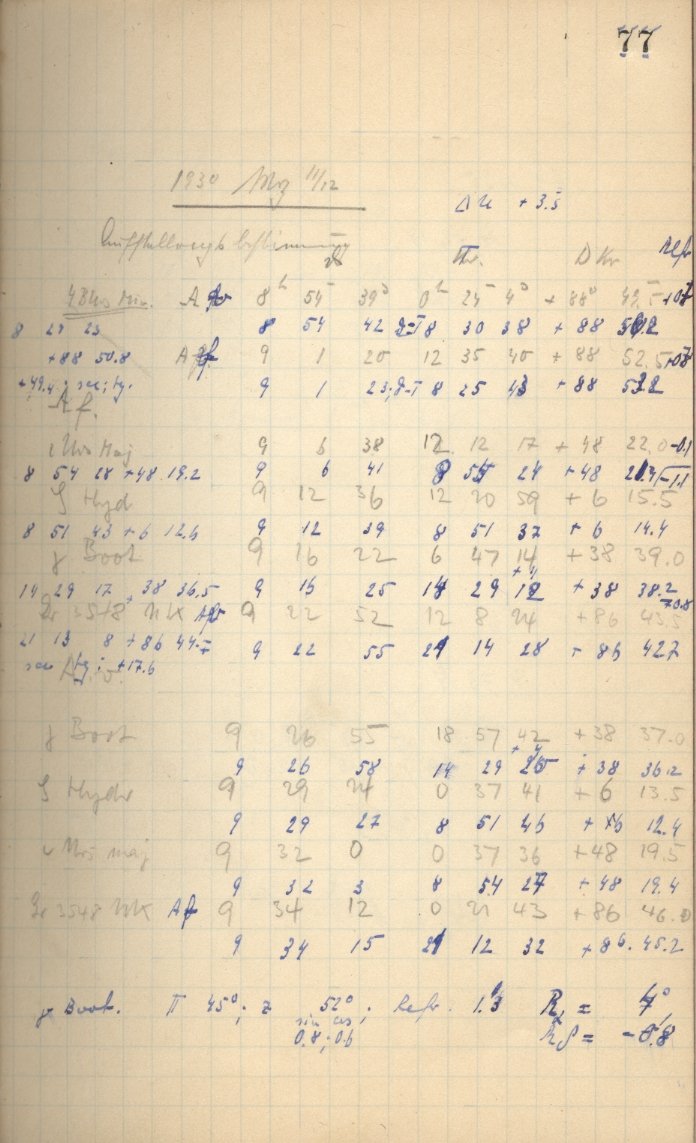 77
1930 Mrz 11/12
Δu + 3.5
Aufstellungsbestimmung
D Kr Refr
4 B Urs Min. 8h 54m 39s 0h 24m 4s + 88° 49.5
8 54 42 8 30 38 + 88
+88 50.8 9 1 20 12 35 40 + 88 52.5
9 1 23 8 25 43 + 88
A f.
ι Urs Maj 9 6 38 12 12 17 + 48 22.0 -0.1
8 54 28 +48 19.2 9 6 41 8 54 24 + 48
ζ Hyd 9 12 36 12 20 59 + 6 15.5
8 51 43 + 6 12.6 9 12 39 8 51 37 + 6 14.4
γ Boot 9 16 22 6 47 14 + 38 39.0
14 29 17 + 38 36.5 9 16 25 14 29 + 38 38.2
Gr 3548 UK 9 22 52 12 8 24 + 86 43.5
21 13 8 + 86 44.7 9 22 55 21 14 28 + 86 42.7
sec tg: +17.6
γ Boot 9 26 55 18 57 42 + 38 37.0
9 26 58 14 29 + 38 36.2
ζ Hydr 9 29 24 0 37 41 + 6 13.5
9 29 27 8 51 46 + 12.4
ι Urs maj 9 32 0 0 37 36 + 48 19.5
9 32 3 8 54 27 + 48 19.4
Gr 3548 UK 9 34 12 0 21 43 + 86 46.0
9 34 15 21 12 32 + 86. 45.2
γ Boot. 45°; z 52°; Refr. 1.3
sin cos
0.8; 0.6